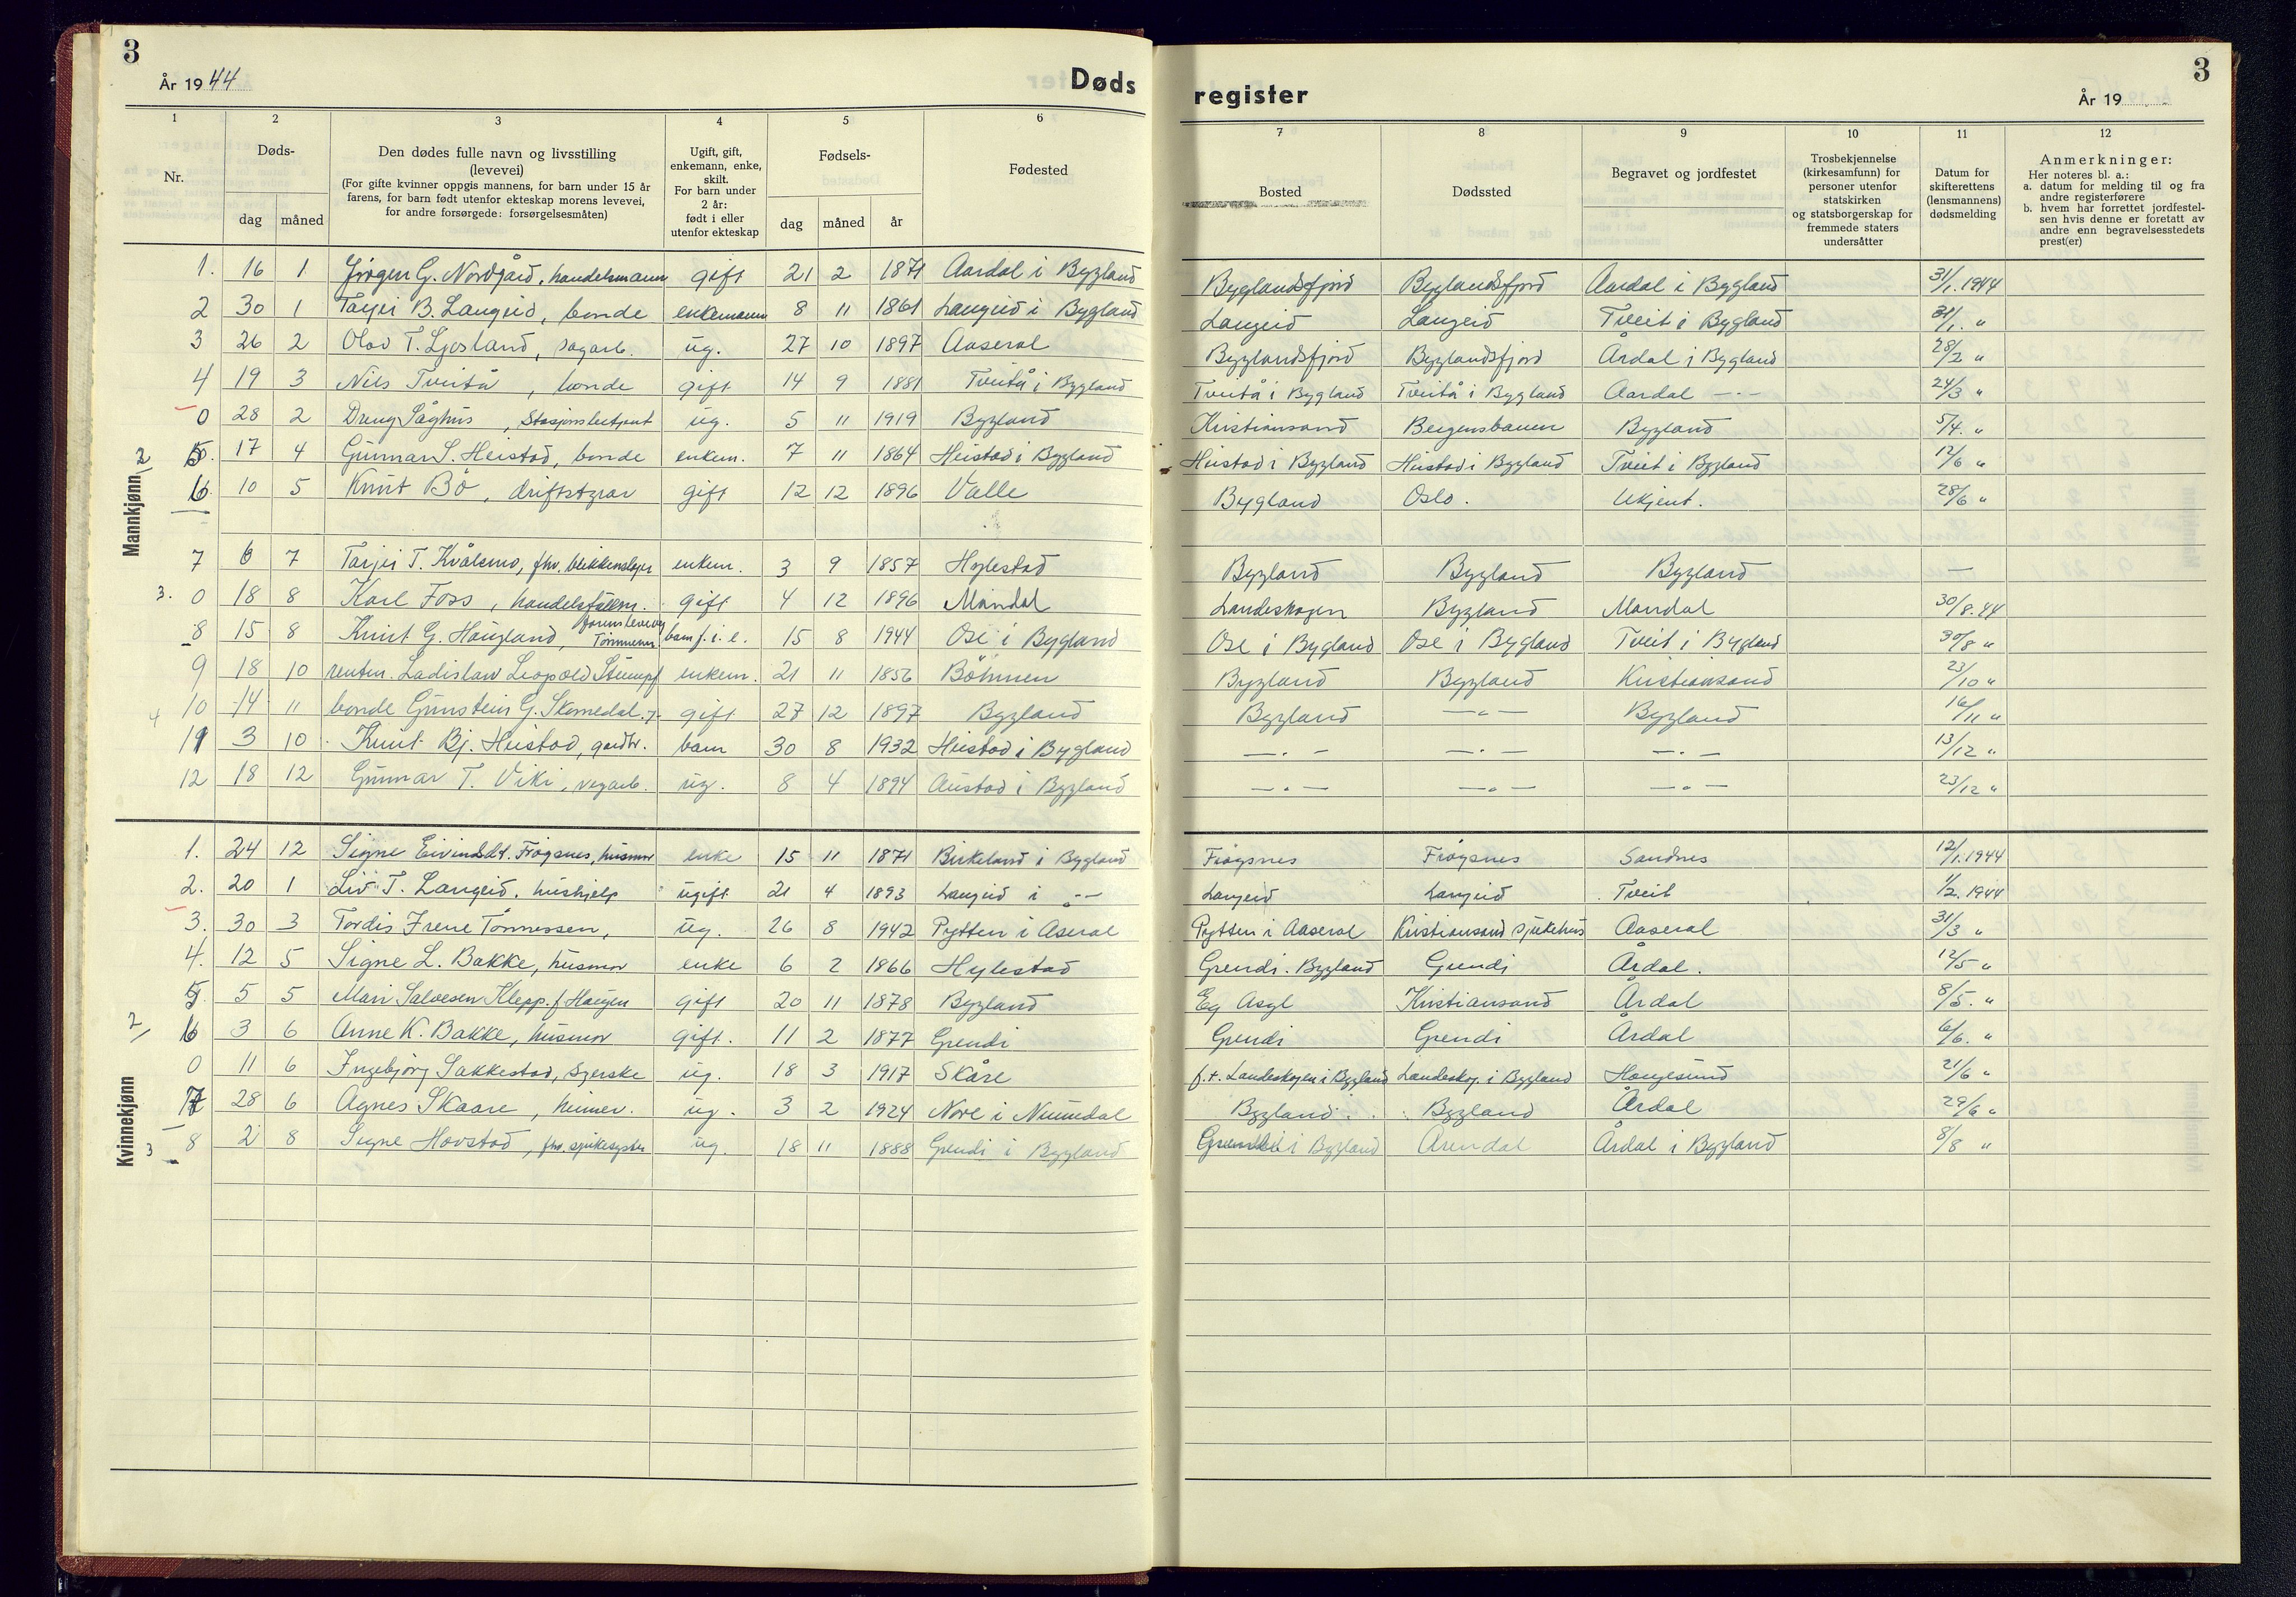 3
År 1944
Døds
1 2 3 4 5 6
Nr.
Døds-
dag måned
Den dødes fulle navn og livsstilling
(levevei)
(For gifte kvinner oppgis mannens, for barn under 15 år
farens, for barn født utenfor ekteskap morens levevei,
for andre forsørgede: forsørgelsesmåten)
Ugift, gift,
enkemann, enke,
skilt.
For barn under
2 år:
født i eller
utenfor ekteskap
Fødsels-
dag måned år
Fødested
Mannkjønn
1. 16 1 Jørgen G. Nordgård, handelsmann gift 21 2 1871 Aardal i Bygland
2 30 1 Tarjei B. Langeid, bonde enkemann 8 11 1861 Langeid i Bygland
3 26 2 Olav T. Ljosland, sagarb. ug. 27 10 1897 Aaseral
4 19 3 Nils Tveitå, bonde gift 14 9 1881 Tveitå i Bygland
0 28 2 Dreng Såghus, Stasjonsbetjent ug. 5 11 1919 Bygland
2 5. 17 4 Gunnar S. Heistad, bonde enkem. 7 11 1864 Heistad i Bygland
6. 10 5 Knut Bö, driftstyrar gift 12 12 1896 Valle
7 6 7 Tarjei T. Kvålsmo, fhv. blikkenslager enkem. 3 9 1857 Hylestad
3. 0 18 8 Karl Foss, handelsfullm. gift 4 12 1896 Mandal
8 15 8 Knut G. Haugland, farens levevei Tömmerm. barn f. i. e. 15 8 1944 Ose i Bygland
9 18 10 rentm. Ladislaw Leopold Stumpf enkem. 21 11 1856 Böhmen
4 10 14 11 bonde Gunstein G. Skomedal. gift 27 12 1897 Bygland
11 3 10 Knut Bj. Heistad, gardbr. barn 30 8 1932 Heistad i Bygland
12 18 12 Gunnar T. Viki, vegarb. ug. 8 4 1894 Austad i Bygland
Kvinnekjønn
1. 24 12 Signe Eivindsdt. Frøysnes, husmor enke 15 11 1871 Birkeland i Bygland
2. 20 1 Liv T. Langeid. hushjelp ugift 21 4 1893 Langeid i -"-
3. 30 3 Tordis Irene Tönnessen, ug. 26 8 1942 Pytten i Aseral
4. 12 5 Signe L. Bakke, husmor enke 6 2 1866 Hylestad
5. 5 5 Mari Salvesen Klepp. f Haugen gift 20 11 1878 Bygland
2 6 3 6 Anne K. Bakke, husmor gift. 11 2 1877 Grendi
0 11 6 Ingebjörg Sakkestad, Syerske ug. 18 3 1917 Skåre
7 28 6 Agnes Skaare, heimev. ug. 3 2 1924 Nore i Numedal
3 8 2 8 Signe Hovstad, fhv. sjukesyster ug. 18 11 1888 Grendi i Bygland
3
register
År 19
7 8 9 10 11 12
Bosted
Dødssted
Begravet og jordfestet
Trosbekjennelse
(kirkesamfunn) for
personer utenfor
statskirken
og statsborgerskap for
fremmede staters
undersåtter
Datum for
skifterettens
(lensmannens)
dødsmelding
Anmerkninger:
Her noteres bl. a.:
a. datum for melding til og fra
andre registerførere
b. hvem har forrettet jordfestel-
sen hvis denne er foretatt av
andre enn begravelsesstedets
prest(er)
Byglandsfjord Byglandsfjord Aardal i Bygland 31/1. 1944
Langeid Langeid Tveit i Bygland 31/1. "
Byglandsfjord Byglandsfjord Årdal i Bygland 28/2 "
Tveitå i Bygland Tveitå i Bygland Aardal -"- 24/3 "
Kristiansand Bergensbanen Bygland 5/4. "
Heistad i Bygland Heistad i Bygland Tveit i Bygland 12/6 "
Bygland Oslo. Ukjent. 28/6 "
Bygland Bygland Bygland —
Landeskogen Bygland Mandal 30/8. 44
Ose i Bygland Ose i Bygland Tveit i Bygland 30/8 "
Bygland Bygland Kristiansand 23/10 "
Bygland -"- Bygland 16/11 "
-"- -"- -"- 13/12 "
-"- -"- -"- 23/12 "
Frøysnes Frøysnes Sandnes 12/1. 1944
Langeid Langeid Tveit 1/2. 1944
Pytten i Aaseral Kristiansand Sjukehus Aaseral 31/3 "
Grendi. Bygland Grendi Årdal. 12/5 "
Eg Asyl Kristiansand Årdal 8/5. "
Grendi Grendi Årdal 6/6. "
f.t. Landeskogen i Bygland Landeskog. i Bygland Haugesund 21/6 "
Bygland Bygland Årdal 29/6 "
Grendi i Bygland Arendal Årdal i Bygland 8/8 "